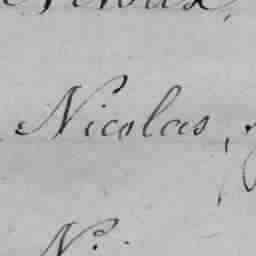 Nicolas,
N.º